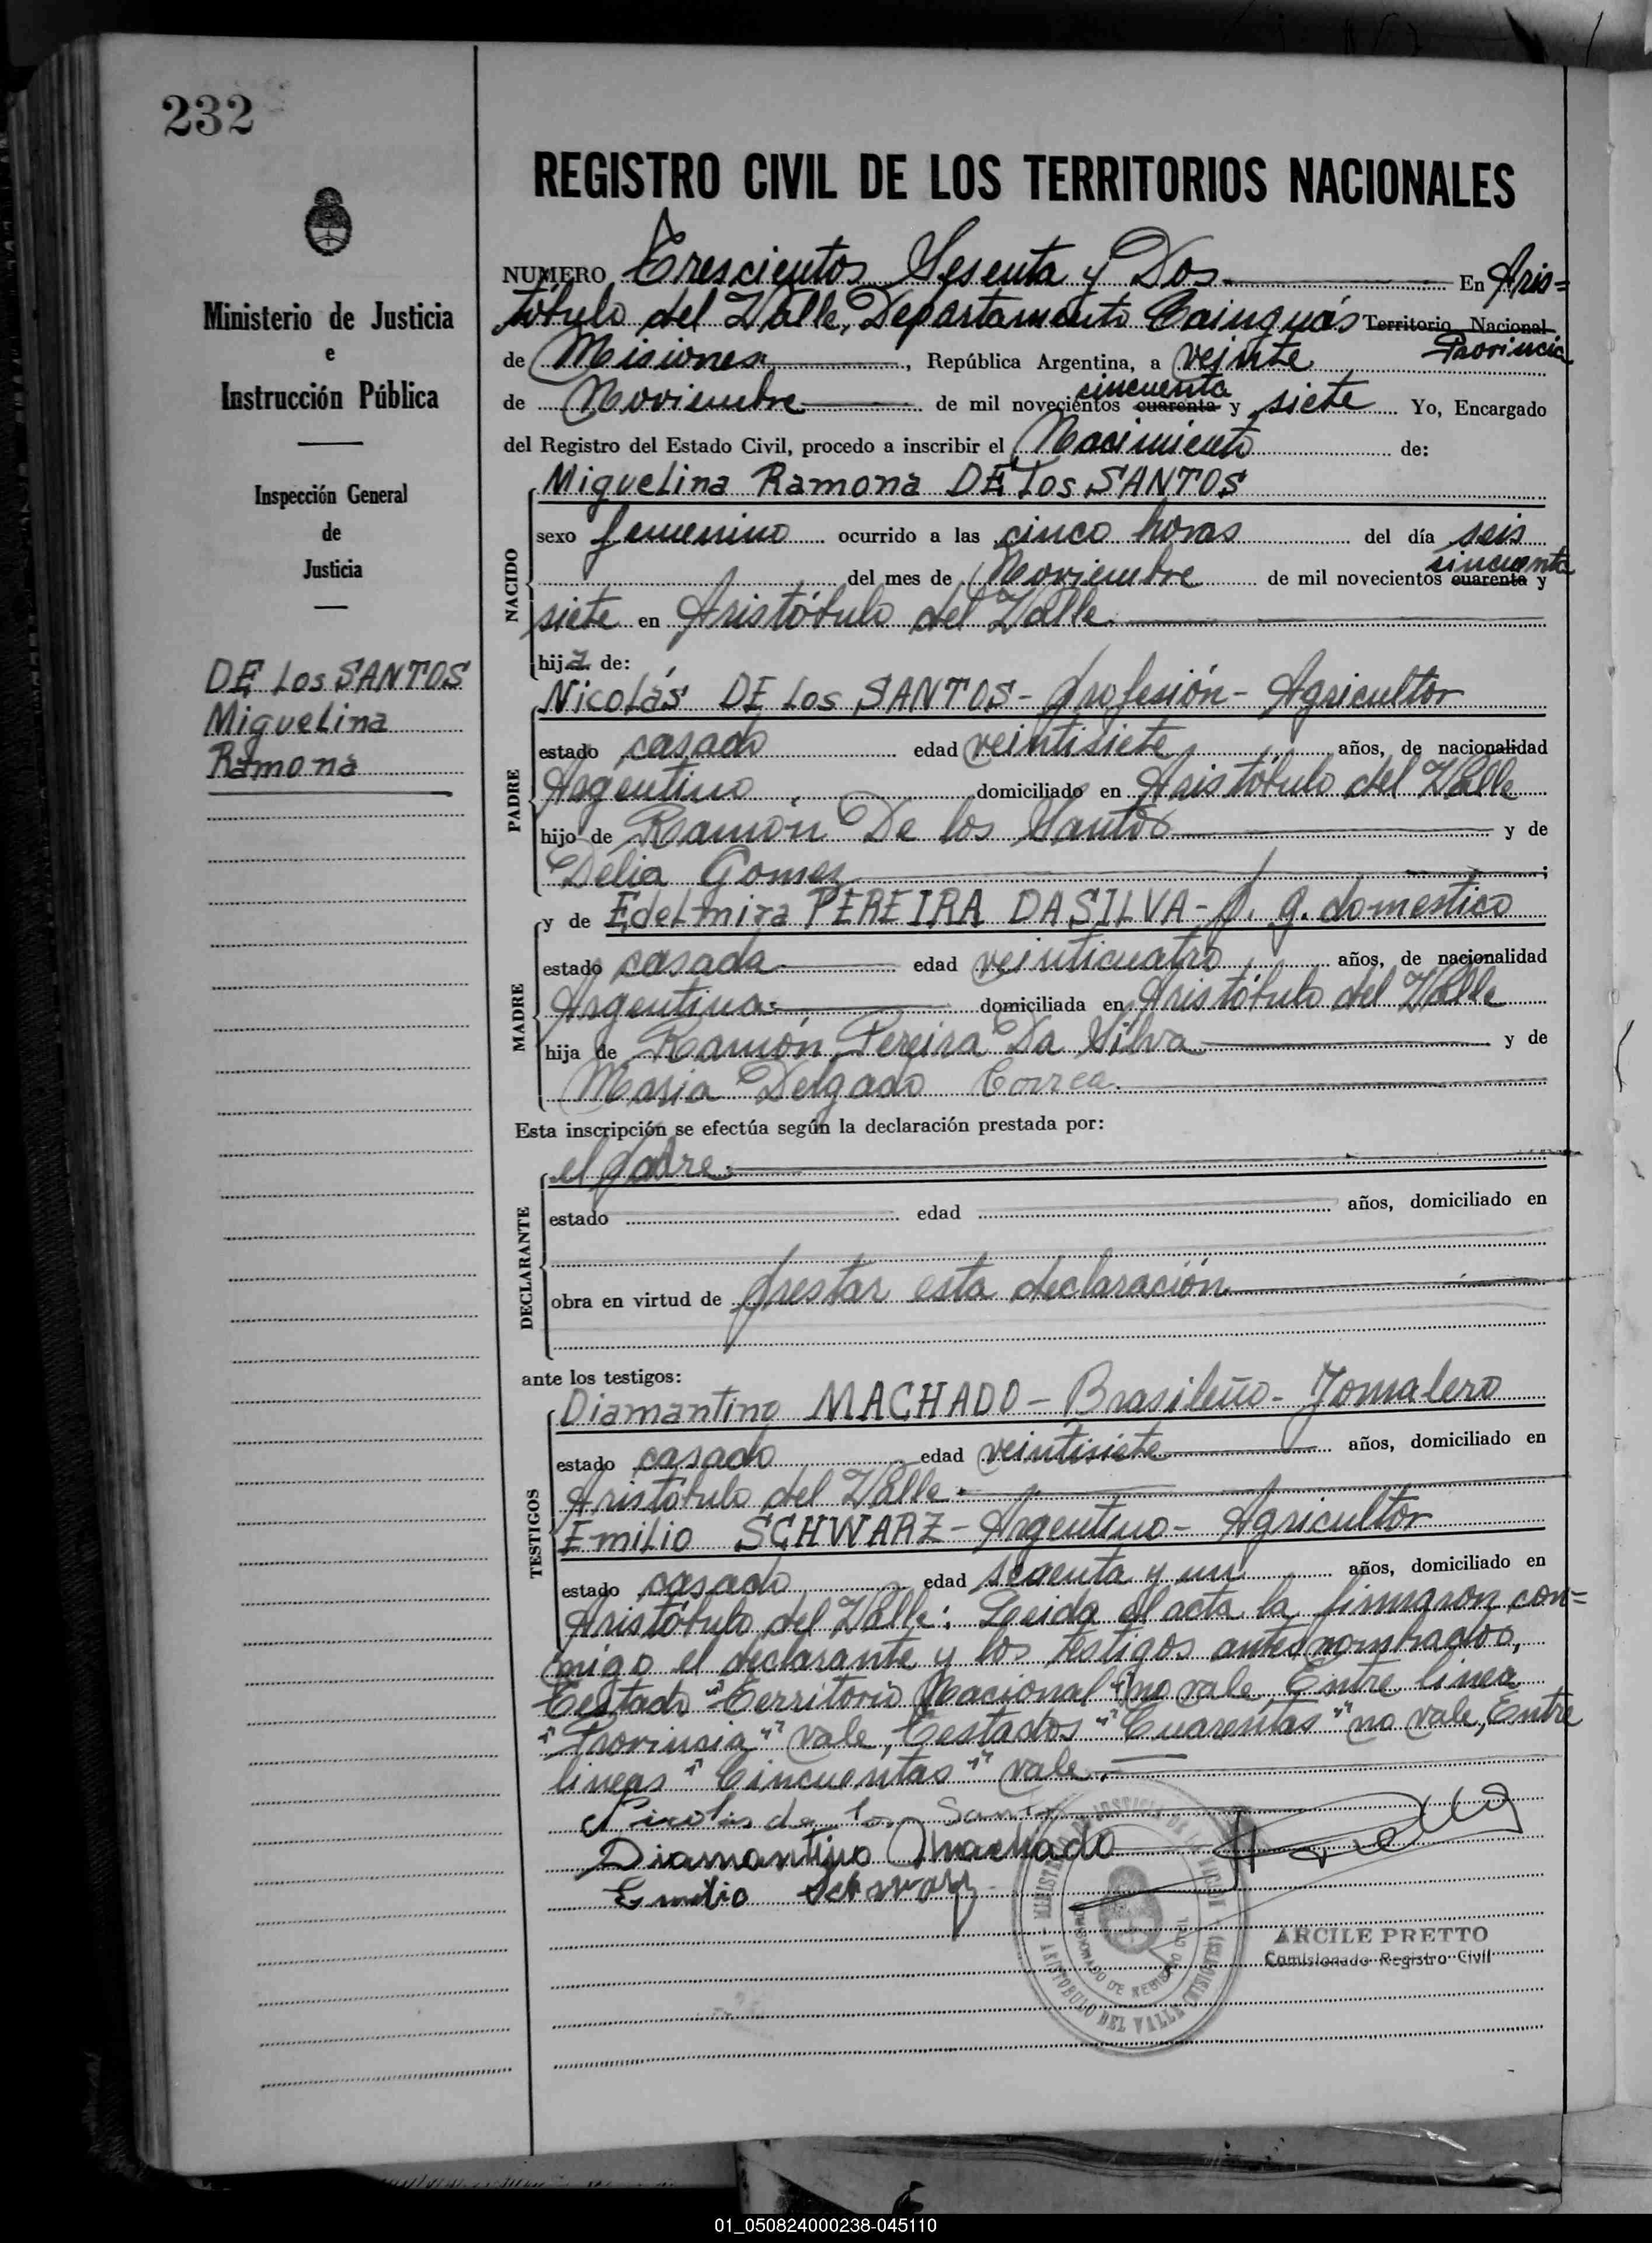 232
Ministerio de Justicia
e
Instrucción Pública
Inspección General
de
Justicia
DE Los SANTOS
Miguelina
Ramona
REGISTRO CIVIL DE LOS TERRITORIOS NACIONALES
NUMERO Trescientos Sesenta y Dos En Aris=
tóbulo del Valle, Departamento Cainguás Territorio Nacional
Provincia
de Misiones, República Argentina, a veinte
cincuenta
de Noviembre de mil novecientos cuarenta y siete Yo, Encargado
del Registro del Estado Civil, procedo a inscribir el Nacimiento de:
Miguelina Ramona DE Los SANTOS
NACIDO
sexo femenino ocurrido a las cinco horas del día seis
cincuenta
del mes de Noviembre de mil novecientos cuarenta y
siete en Aristóbulo del Valle.
hija de:
PADRE
Nicolás DE Los SANTOS - profesión - Agricultor
estado casado edad veintisiete años, de nacionalidad
Argentino domiciliado en Aristóbulo del Valle
hijo de Ramón De los Santos y de
Delia Gomez ;
MADRE
y de Edelmira PEREIRA DASILVA - p. q. domestico
estado casada edad veinticuatro años, de nacionalidad
Argentina: domiciliada en Aristóbulo del Valle
hija de Ramón Pereira Da Silva y de
Maria Delgado Correa.
Esta inscripción se efectúa según la declaración prestada por:
DECLARANTE
el padre:
estado edad años, domiciliado en
obra en virtud de prestar esta declaración
ante los testigos:
TESTIGOS
Diamantino MACHADO - Brasileño - Jornalero
estado casado edad veintisiete años, domiciliado en
Aristóbulo del Valle.
Emilio SCHWARZ - Argentino - Agricultor
estado casado edad sesenta y un años, domiciliado en
Aristóbulo del Valle: Leida el acta la firmaron con=
migo el declarante y los testigos antes nombrados,
Testado "Territorio Nacional" no vale, Entre linea
"Provincia" vale, Testados "Cuarentas" no vale, Entre
lineas "Cincuentas" vale.
Nicolas de los Santos
Diamantino Machado
Emilio Schwarz
MINISTERIO DE JUSTICIA DE LA NACION
COMISIONADO DE REGISTRO CIVIL
ARISTOBULO DEL VALLE (MISIONES)
ARCILE PRETTO
Comisionado Registro Civil
01_050824000238-045110